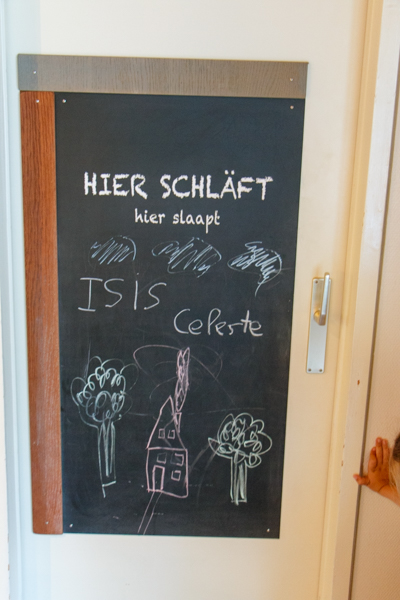 HIER SCHLÄFT
hier slaapt
ISIS
Celeste